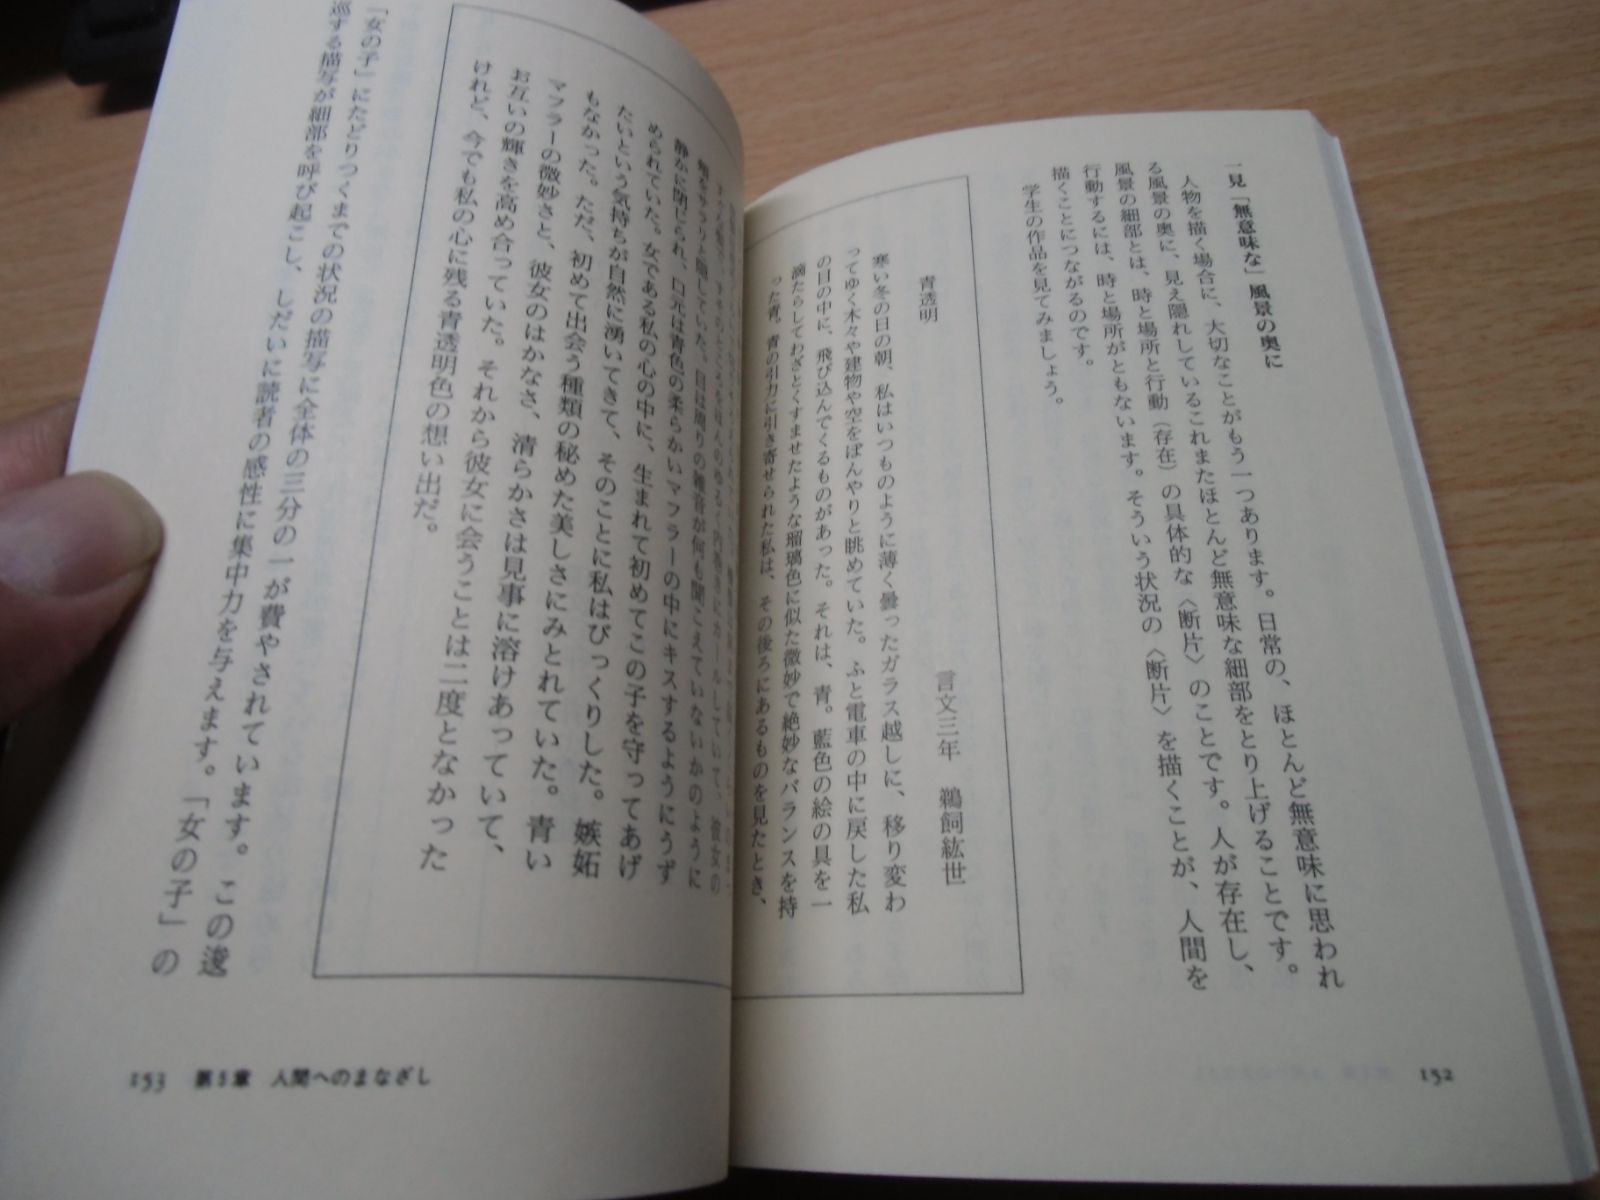 一見「無意味な」風景の奥に
人物を描く場合に、大切なことがもう一つあります。日常の、ほとんど無意味に思われ
る風景の奥に、見え隠れしているこれまたほとんど無意味な細部をとり上げることです。
風景の細部とは、時と場所と行動(存在)の具体的な〈断片〉のことです。人が存在し、
行動するには、時と場所がともないます。そういう状況の〈断片〉を描くことが、人間を
描くことにつながるのです。
学生の作品を見てみましょう。
青透明
言文三年 鵜飼紘世
寒い冬の日の朝、私はいつものように薄く曇ったガラス越しに、移り変わ
ってゆく木々や建物や空をぼんやりと眺めていた。ふと電車の中に戻した私
の目の中に、飛び込んでくるものがあった。それは、青。藍色の絵の具を一
滴たらしてわざとくすませたような瑠璃色に似た微妙で絶妙なバランスを持
った青。青の引力に引き寄せられた私は、その後ろにあるものを見たとき、
頬をサラリと隠していた。目は周りの雑音が何も聞こえていないかのように
静かに閉じられ、口元は青色の柔らかいマフラーの中にキスするようにうず
められていた。女である私の心の中に、生まれて初めてこの子を守ってあげ
たいという気持ちが自然に湧いてきて、そのことに私はびっくりした。嫉妬
もなかった。ただ、初めて出会う種類の秘めた美しさにみとれていた。青い
マフラーの微妙さと、彼女のはかなさ、清らかさは見事に溶けあっていて、
お互いの輝きを高め合っていた。それから彼女に会うことは二度となかった
けれど、今でも私の心に残る青透明色の想い出だ。
「女の子」にたどりつくまでの状況の描写に全体の三分の一が費やされています。この逡
巡する描写が細部を呼び起こし、しだいに読者の感性に集中力を与えます。「女の子」の
152
153 第5章 人間へのまなざし